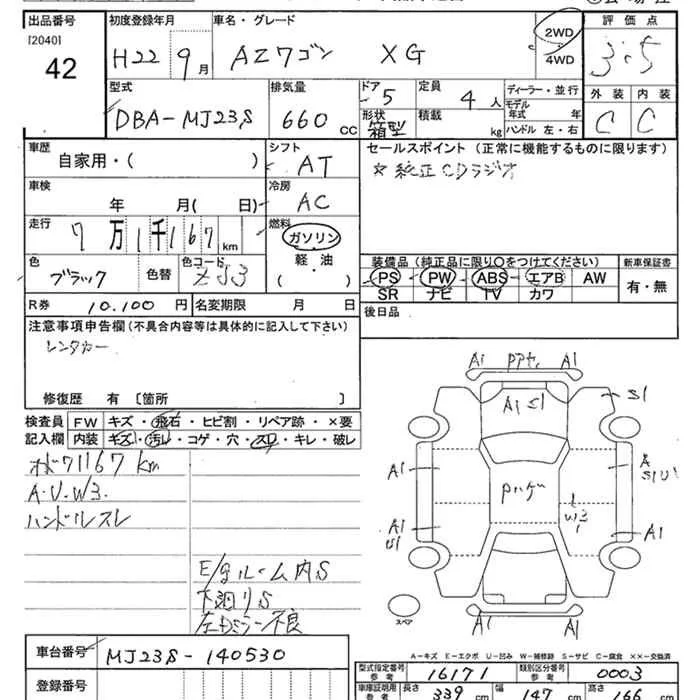 出品番号 初度登録年月 車名・グレード 2WD 評価点
[2040]
42 H22 9月 AZワゴン XG 4WD 3.5
型式 排気量 ドア 定員 ディーラー・並行 外装 内装
DBA-MJ23S 660 CC 5 4人 モデル年式 年 C C
形状 積載 ハンドル 左・右
箱型 kg
車歴 シフト セールスポイント (正常に機能するものに限ります)
自家用・( ) AT ☆純正CDラジオ
車検 冷房
年 月( 日) AC
走行 燃料
7万1千167km ガソリン
軽・油
( )
色 色替 色コード 装備品 (純正品に限り○をつけてください) 新車保証書
ブラック ZJ3 PS PW ABS エアB AW 有・無
SR ナビ TV カワ
R券 10,100円 名変期限 月 日 後日品
注意事項申告欄 (不具合内容等は具体的に記入して下さい)
レンタカー
修復歴 有 [箇所
検査員 FW キズ・飛石・ヒビ割・リペア跡・×要
記入欄 内装 キズ・汚レ・コゲ・穴・スレ・キレ・破レ
A1 A1
A1 S1 S1
71167km A1
A.U.W3. Pハゲ
ハンドルスレ W3
A1 A1
E/gルーム内S
下廻りS
左Dミラー不良 A1 A1
スペア
A=キズ E=エクボ U=凹み W=補修跡 S=サビ C=腐食 ××=交換済
車台番号 MJ23S-140530 型式指定番号 参考 16171 類別区分番号 参考 0003
登録番号 車庫証明用 参考 長さ 339 幅 147 高さ 166
cm cm